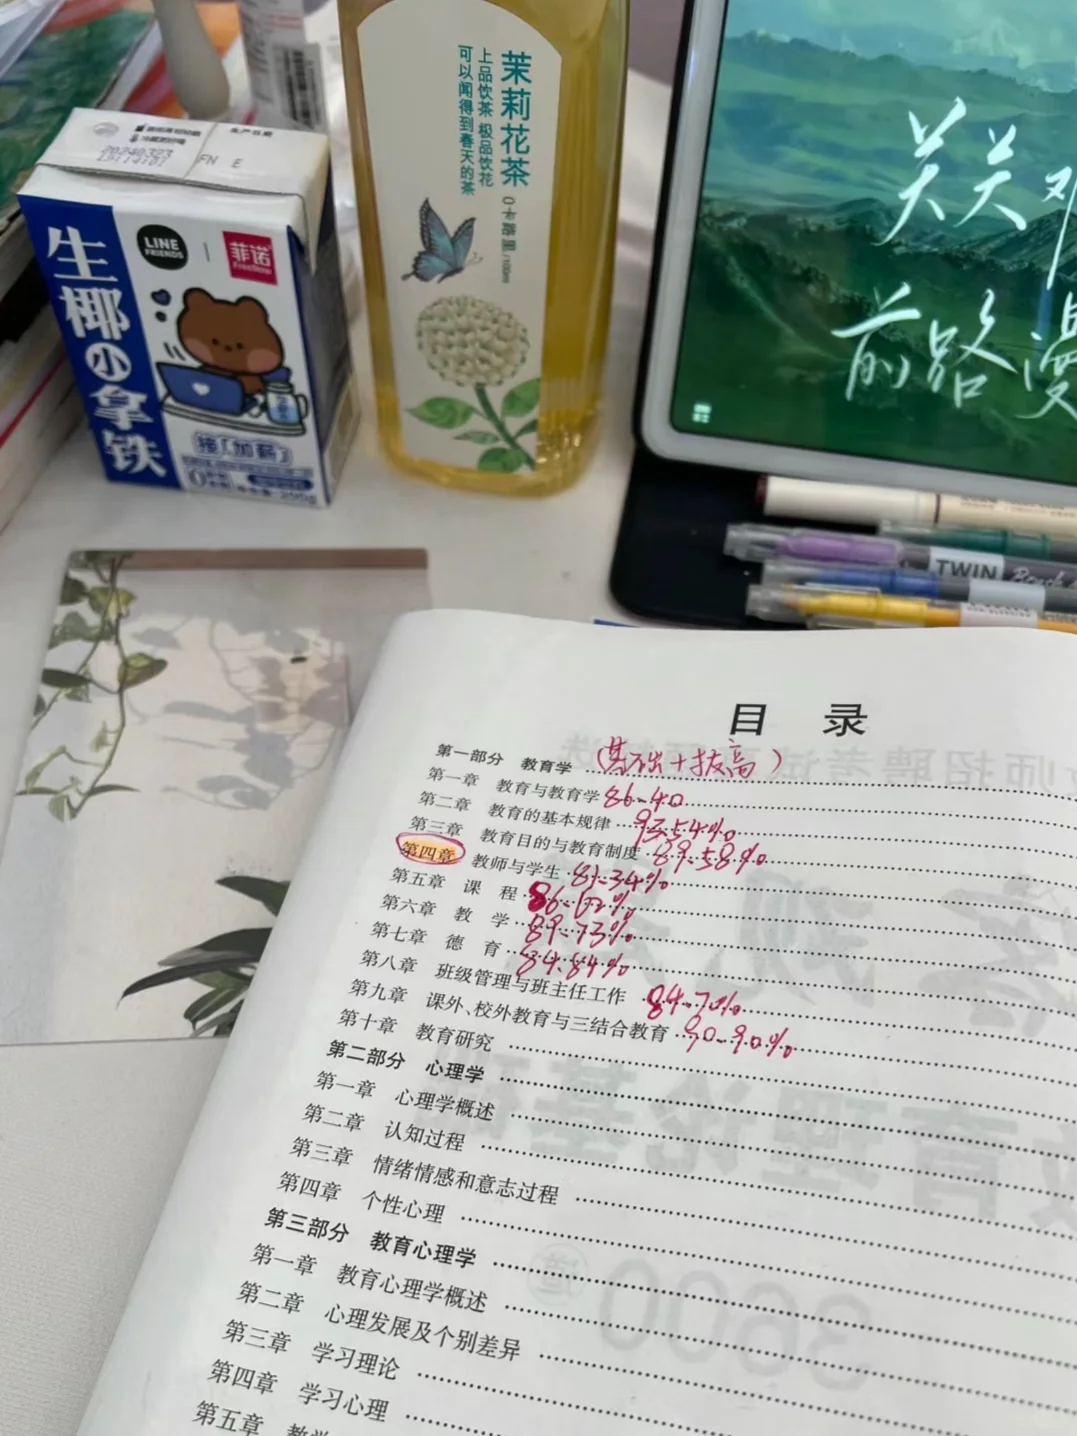 20240323
FN E
生产日期
LINE FRIENDS
菲诺
生椰小拿铁
接「加薪」
200g
茉莉花茶
上品饮茶 极品饮花
可以闻得到春天的茶
0卡路里/100ml
关关难
前路漫
TWIN Brush
目 录
第一部分 教育学 (基础+拔高)
第一章 教育与教育学 86-40
第二章 教育的基本规律 93.54%
第三章 教育目的与教育制度 89.58%
第四章 教师与学生 81.34%
第五章 课 程 86.62%
第六章 教 学 89.73%
第七章 德 育 84.84%
第八章 班级管理与班主任工作 84.70%
第九章 课外、校外教育与三结合教育 90.90%
第十章 教育研究
第二部分 心理学
第一章 心理学概述
第二章 认知过程
第三章 情绪情感和意志过程
第四章 个性心理
第三部分 教育心理学
第一章 教育心理学概述
第二章 心理发展及个别差异
第三章 学习理论
第四章 学习心理
第五章 教学